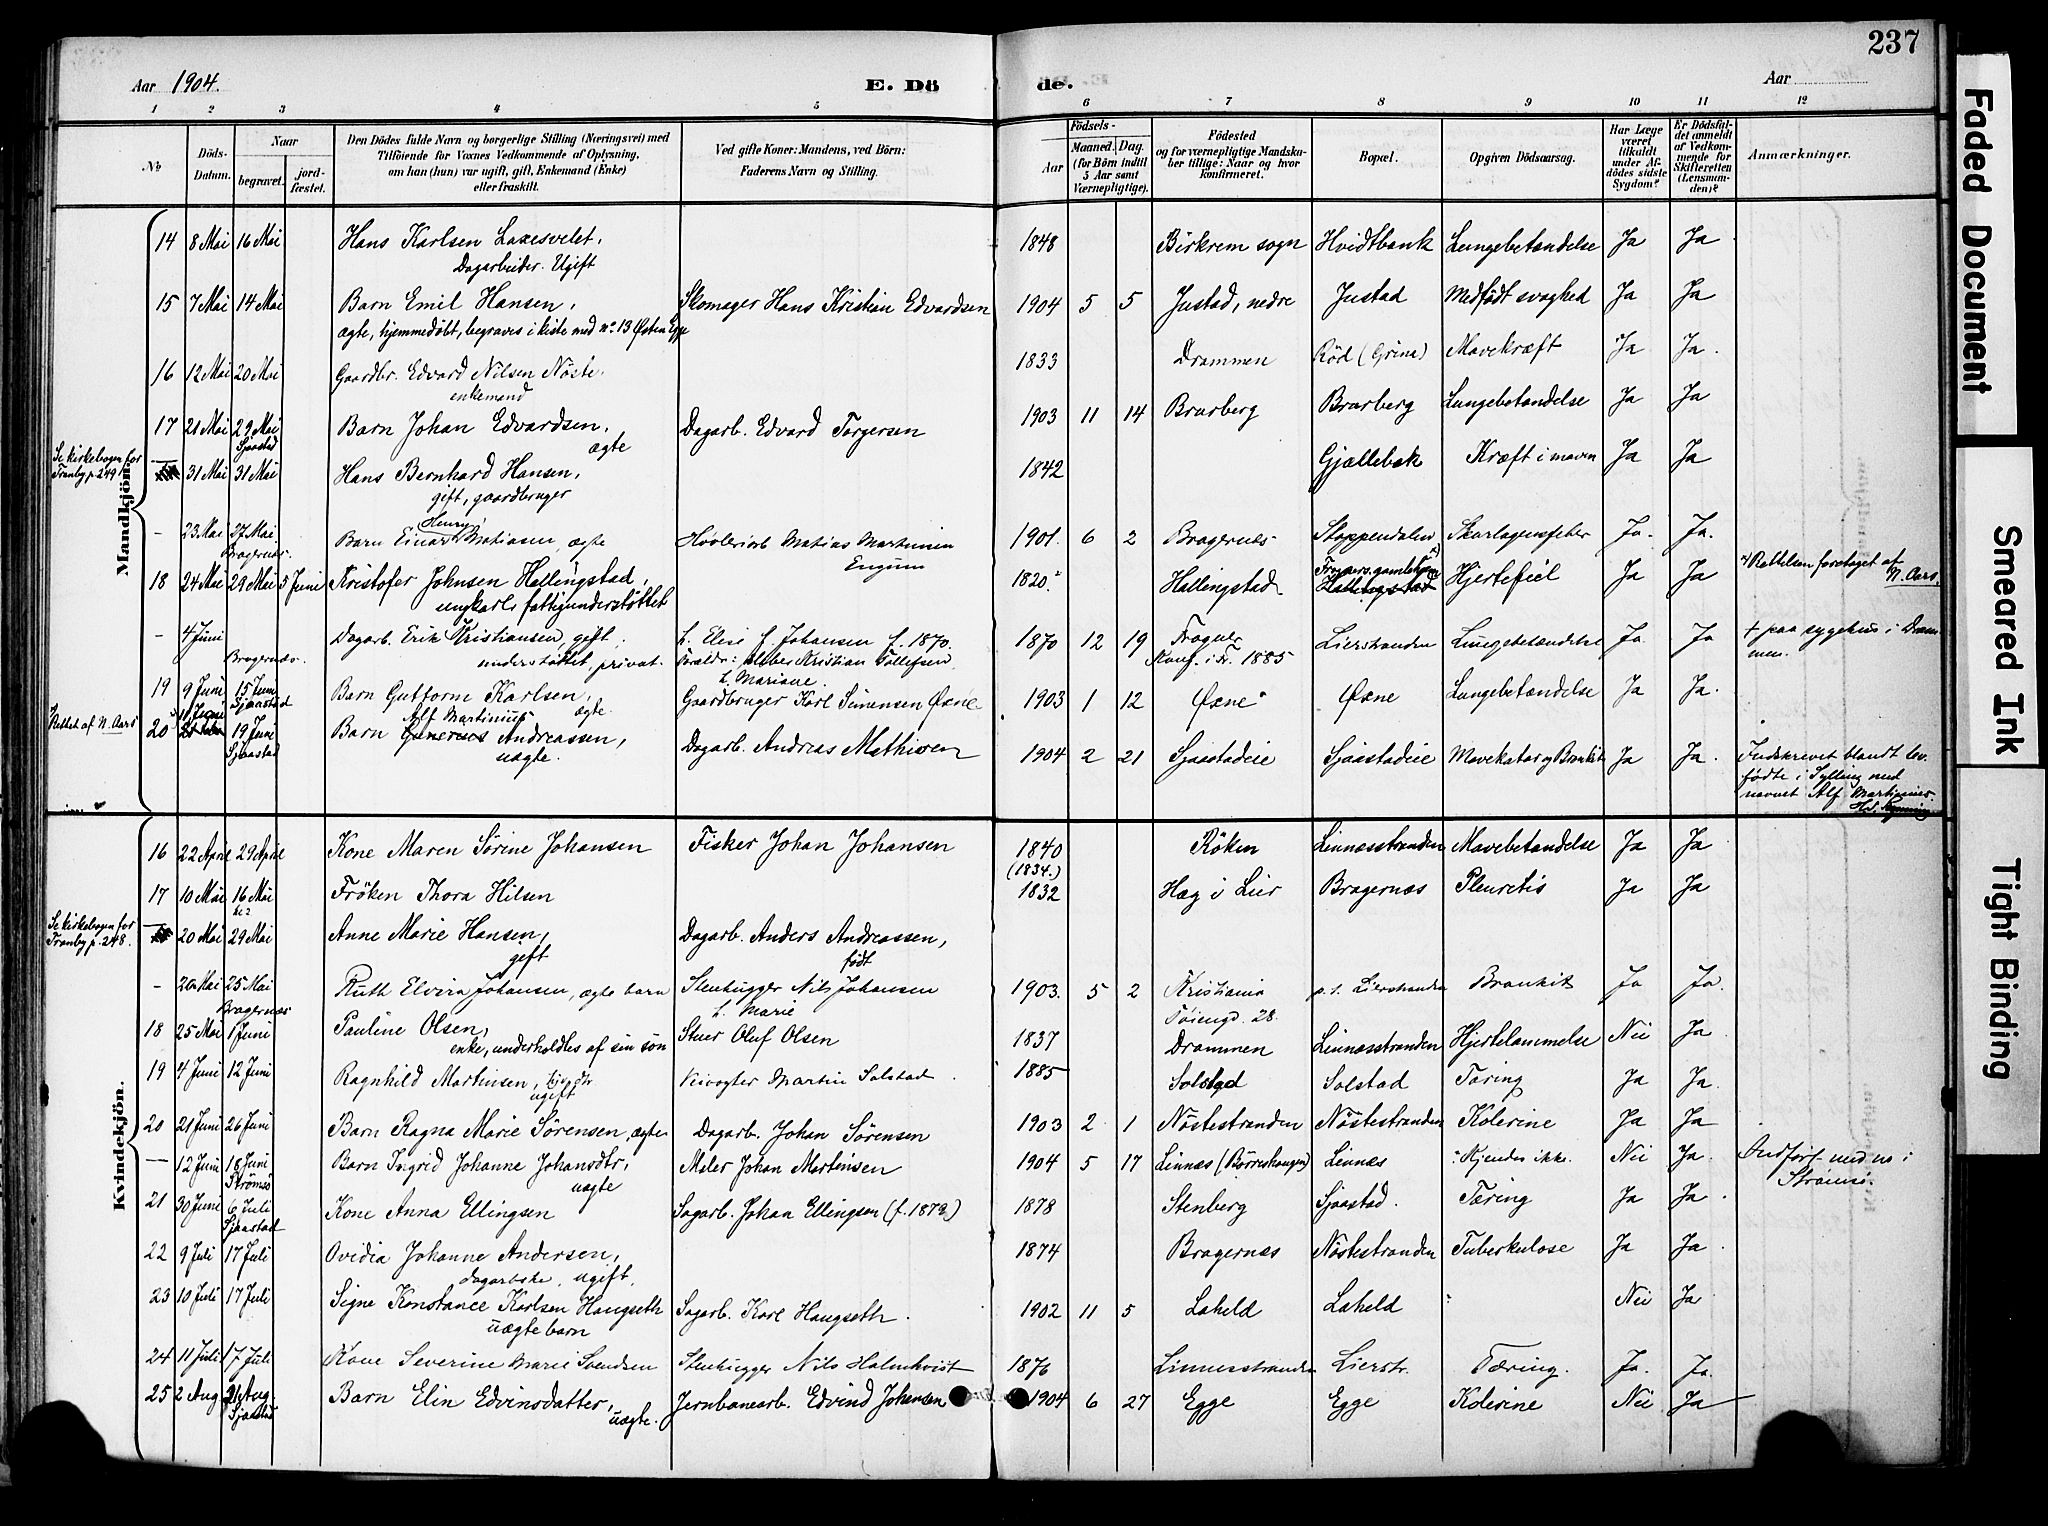 237
Aar 1904. E. Dö de. Aar
1 2 3 4 5 6 7 8 9 10 11 12
No Döds-Datum. Naar begravet. jord-fæstet. Den Dödes fulde Navn og borgerlige Stilling (Næringsvei) med Tilföiende for Voxnes Vedkommende af Oplysning, om han (hun) var ugift, gift, Enkemand (Enke) eller fraskilt. Ved gifte Koner: Mandens, ved Börn: Faderens Navn og Stilling. Aar Födsels- Maaned. Dag. (for Börn indtil 5 Aar samt Værnepligtige). Födested og for værnepligtige Mandska-ber tillige: Naar og hvor konfirmeret. Bopæl. Opgiven Dödsaarsag. Har Læge været tilkaldt under Af-dödes sidste Sygdom? Er Dödsfal-det anmeldt af Vedkom-mende for Skifteretten (Lensman-den)? Anmærkninger.
Mandkjön.
14 8 Mai 16 Mai Hans Karlsen Laxesvelet, 1848 Birkrem sogn Hvidtbank Lungebetændelse Ja Ja
Dagarbeider. Ugift
15 7 Mai 14 Mai Barn Emil Hansen, Skomager Hans Kristian Edvardsen 1904 5 5 Justad, nedre Justad Medfödt svaghed Ja Ja
ægte, hjemmedöbt, begraves i kiste med no 13 Østen Egge
16 12 Mai 20 Mai Gaardbr. Edvard Nilsen Nöste. 1833 Drammen Röd (Grina) Mavekræft Ja Ja.
enkemand
17 21 Mai 29 Mai Barn Johan Edvardsen, Dagarb. Edvard Torgersen 1903 11 14 Brarberg Brarberg Lungebetændelse Ja Ja
Sjaastad ægte
Se kirkebogen for
Tranby p. 249 31 Mai 31 Mai Hans Bernhard Hansen, 1842 Gjællebæk Kræft i maven Ja Ja
gift, gaardbruger
- 23 Mai 27 Mai Barn Einar Henry Matiasen, ægte Matias Martinsen Engum 1901 6 2 Bragernæs Stoppendalen Skarlagensfeber Ja. Ja.
Bragernæs.
18 24 Mai 29 Mai 5 Juni Kristofer Johnsen Hallingstad, 1820 Hallingstad Hallingstad Hjertefeil Ja Ja Rettelsen foretaget af N. Aars.
ungkarl, fattigunderstöttet
- 4 Juni Dagarb. Erik Kristiansen, gift, h. Elise f. Johansen f. 1870. 1870 12 19 Frogner Lierstranden Lungebetændelse Ja Ja + paa sygehus i Dram-men.
Bragernæs. understöttet, privat. Kristian Tollefsen, h. Mariane. Konf. i Fr. 1885
19 9 Juni 15 Juni Barn Guttorm Karlsen, Gaardbruger Karl Simensen Øxne 1903 1 12 Øxne Øxne Lungebetændelse Ja Ja.
Sjaastad ægte.
Rettet af N. Aars
20 11 Juni 19 Juni Barn Alf Martinius Andreassen, Dagarb. Andreas Mathisen 1904 2 21 Sjaastadeie Sjaastadeie Mavekatar og Bronkit Ja Ja. Indskrevet blandt lev.
Sjaastad uægte. födte i Sylling med
navnet Alf Martinius.
Kvindekjön.
16 22 April 29 April Kone Maren Sörine Johansen Fisker Johan Johansen 1840 Röken Linnæsstranden Mavebetændelse Ja Ja
(1834.)
17 10 Mai 16 Mai Fröken Thora Hilsen 1832 Hæg i Lier Bragernæs Pleuretis Ja Ja
Se kirkebogen for
Tranby p. 248. 20 Mai 29 Mai Anne Marie Hansen, Dagarb. Anders Andreassen,
gift födt
- 20 Mai 25 Mai Ruth Elvira Johansen, ægte barn Stenhugger Nils Johansen 1903. 5 2 Kristiania p. t. Lierstranden Bronkit Ja Ja.
Bragernæs h. Marie Töiengd. 28.
18 25 Mai 1 Juni Pauline Olsen, Stuer Oluf Olsen 1837 Drammen Linnæsstranden Hjertelammelse Nei Ja
enke, underholdtes af sin sön
19 4 Juni 12 Juni Ragnhild Martinsen, Veivogter Martin Solstad 1885 Solstad Solstad Tæring Ja Ja.
ugift
20 21 Juni 26 Juni Barn Ragna Marie Sörensen, ægte Dagarb. Johan Sörensen 1903 2 1 Nöstestranden Nöstestranden Kolerine Ja Ja
- 12 Juni 18 Juni Barn Ingrid Johanne Johansdtr, Maler Johan Martinsen 1904 5 17 Linnæs (Börreshaugen) Linnæs Kjendes ikke. Nei Ja. Indfört med no i
Strömsö uægte Strömsö.
21 30 Juni 6 Juli Kone Anna Ellingsen Sagarb. Johan Ellingsen (f. 1872.) 1878 Stenberg Sjaastad. Tæring Ja Ja
Sjaastad
22 9 Juli 17 Juli Ovidia Johanne Andersen, 1874 Bragernæs Nöstestranden Tuberkulose Ja Ja
dagarbske, ugift.
23 10 Juli 17 Juli Signe Konstance Karlsen Haugseth Sagarb. Karl Haugseth. 1902 11 5 Laheld Laheld Nei Ja
uægte barn
24 11 Juli 17 Juli Kone Severine Marie Svendsen Stenhugger Nils Holmkvist 1876 Linnesstranden Lierstr. Tæring. Ja. Ja.
25 2 Aug 21 Aug. Barn Elin Edvinsdatter, Jernbanearb. Edvind Johansen 1904 6 27 Egge Egge Kolerine Nei Ja
Sjaastad uægte.
Faded Document
Smeared Ink
Tight Binding